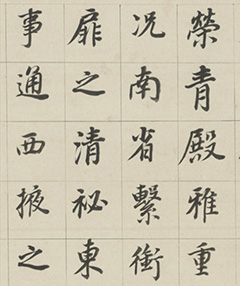 榮青殿雅重
况南省繫銜
扉之清祕東
事通西掖之